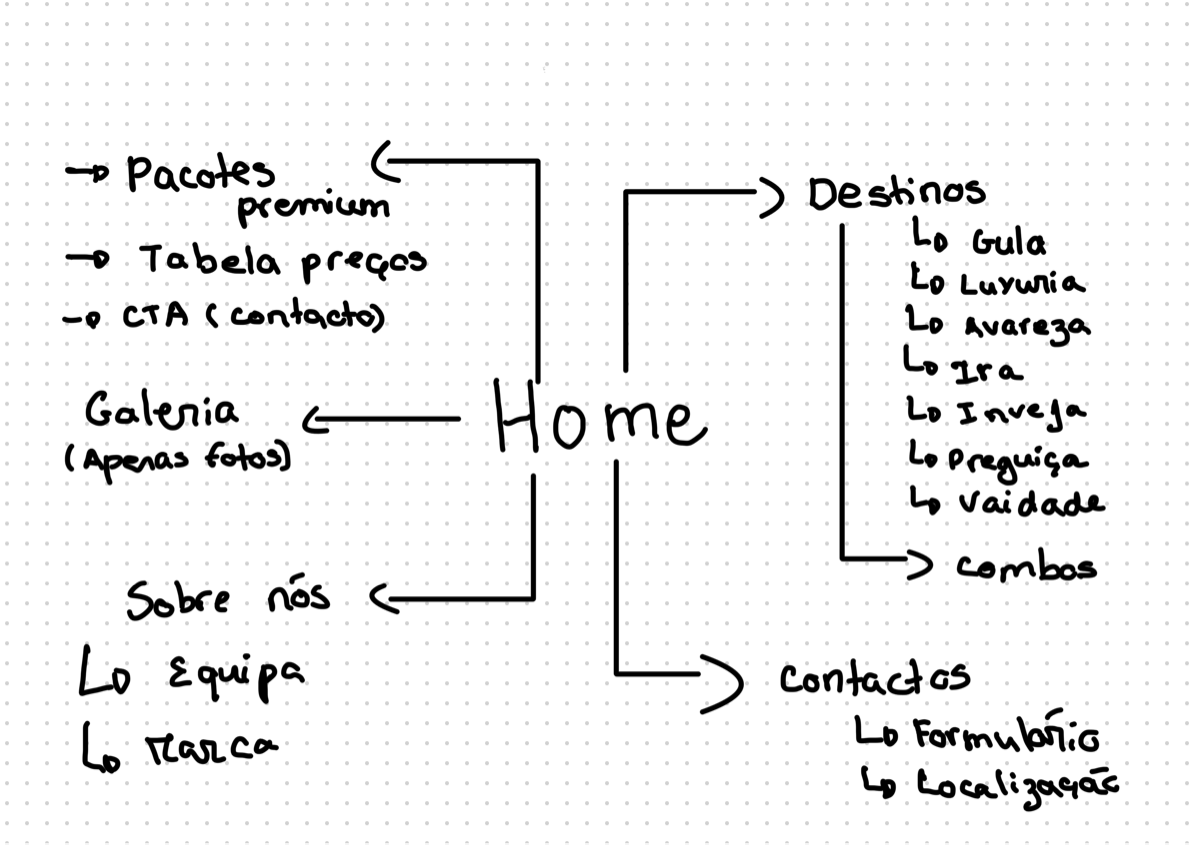 Pacotes
premium
Tabela preços
CTA (contacto)
Galeria
(Apenas fotos)
Home
Sobre nós
Equipa
Marca
Destinos
Gula
Luxuria
Avareza
Ira
Inveja
Preguiça
Vaidade
Combos
Contactos
Formulário
Localização